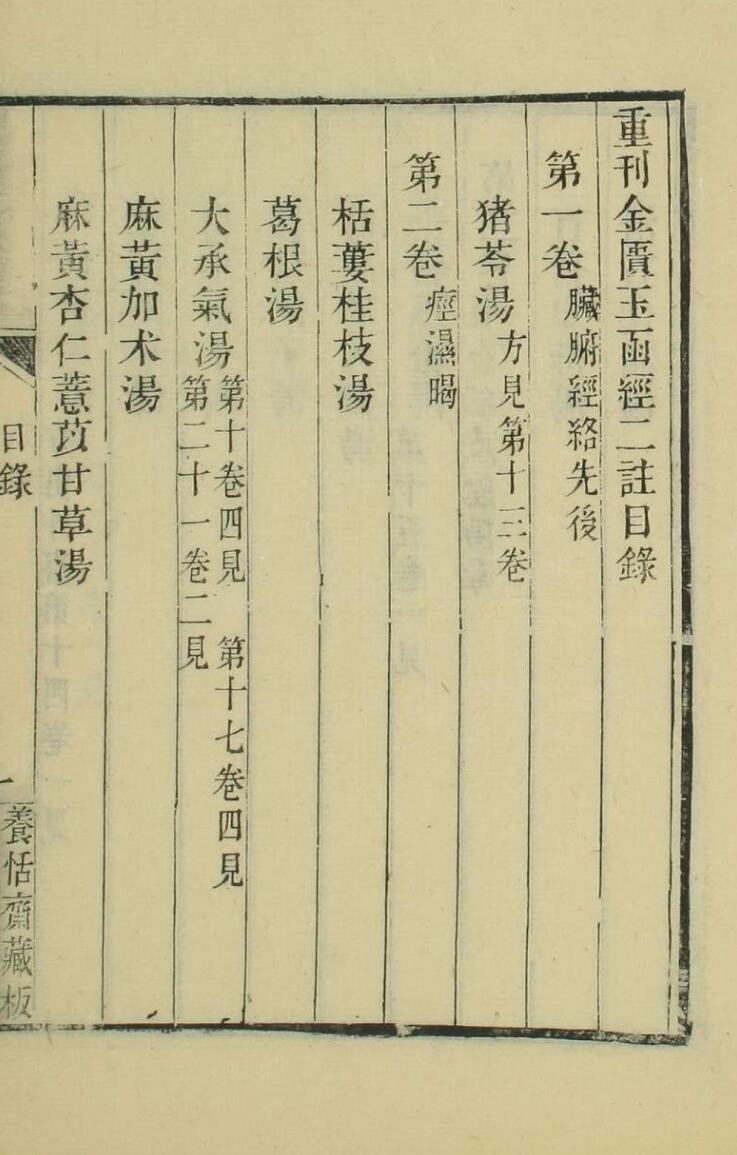 重刊金匱玉函經二註目錄
第一卷 臟腑經絡先後
豬苓湯 方見第十三卷
第二卷 痙濕暍
栝蔞桂枝湯
葛根湯
大承氣湯 第十卷四見 第十七卷四見
第二十一卷二見
麻黃加朮湯
麻黃杏仁薏苡甘草湯
目錄
一
養恬齋藏板